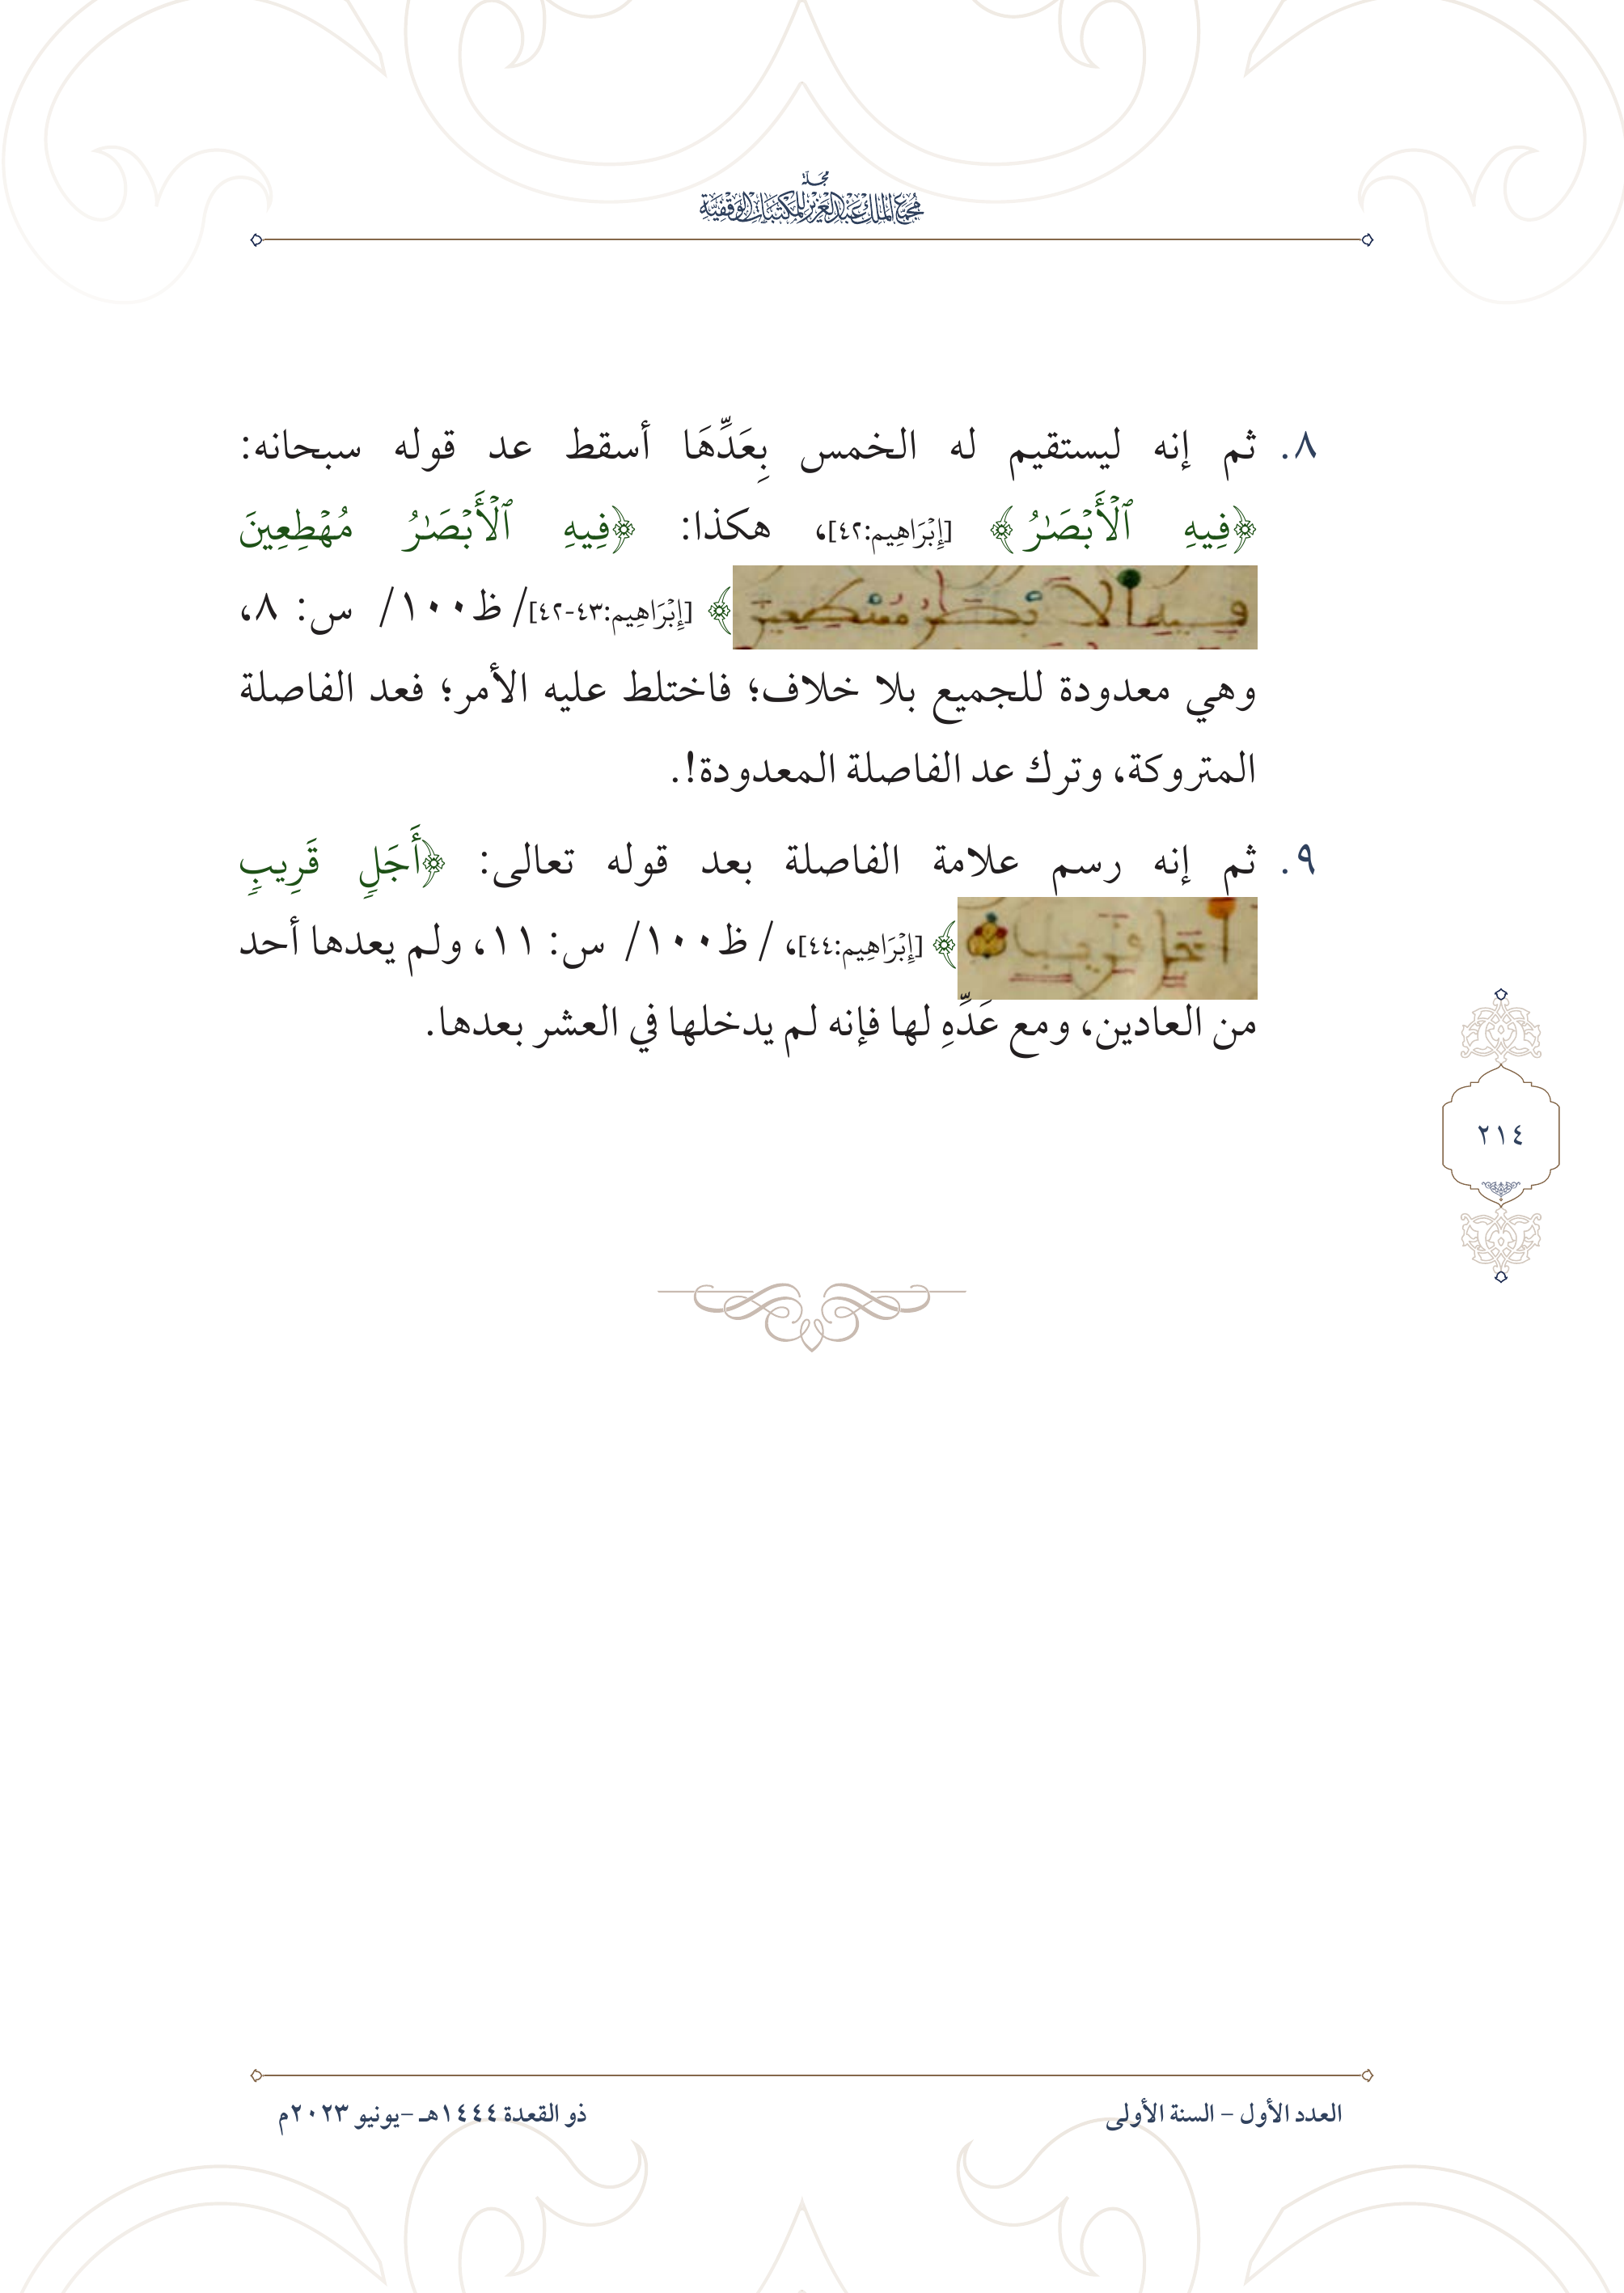 مجلة
مجمع الملك عبدالعزيز للمكتبات الوقفية
٨. ثم إنه ليستقيم له الخمس بِعَدِّهَا أسقط عد قوله سبحانه:
﴿فِيهِ ٱلۡأَبۡصَٰرُ﴾ [إِبۡرَاهِيم:٤٢]، هكذا: ﴿فِيهِ ٱلۡأَبۡصَٰرُ مُهۡطِعِينَ
فيه الابصر مهطعين ﴾ [إِبۡرَاهِيم:٤٣-٤٢]/ ظ١٠٠/ س: ٨،
وهي معدودة للجميع بلا خلاف؛ فاختلط عليه الأمر؛ فعد الفاصلة
المتروكة، وترك عد الفاصلة المعدودة!.
٩. ثم إنه رسم علامة الفاصلة بعد قوله تعالى: ﴿أَجَلٖ قَرِيبٖ
اجل قريب ﴾ [إِبۡرَاهِيم:٤٤]، / ظ١٠٠/ س: ١١، ولم يعدها أحد
من العادين، ومع عَدِّهِ لها فإنه لم يدخلها في العشر بعدها.
٢١٤
العدد الأول – السنة الأولى
ذو القعدة ١٤٤٤هـ –يونيو ٢٠٢٣م